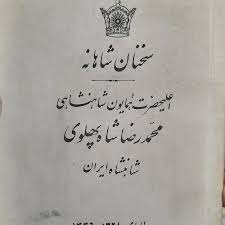 سخنان شاهانه
اعلیحضرت همایون شاهنشاهی
محمد رضا شاه پهلوی
شاهنشاه ایران